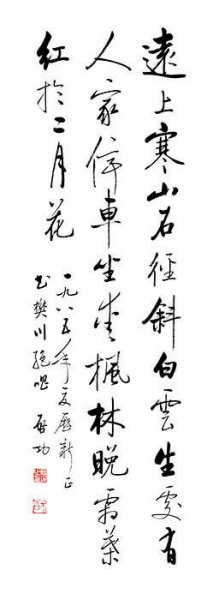 遠上寒山石徑斜白雲生處有
人家停車坐愛楓林晚霜葉
紅於二月花
一九八五年夏曆新正
書樊川絶唱 启功